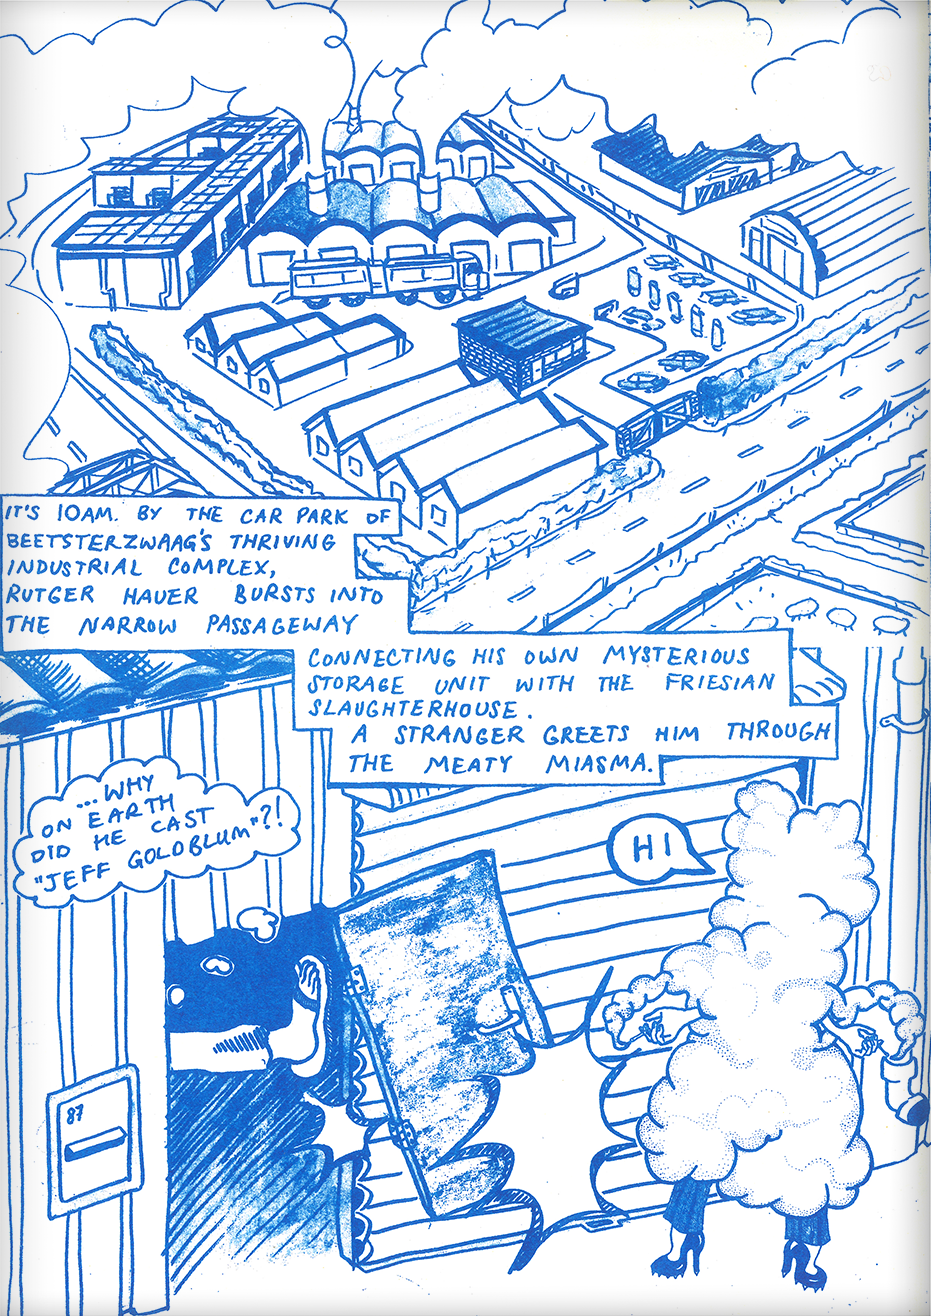 IT'S 10AM. BY THE CAR PARK OF
BEETSTERZWAAG'S THRIVING
INDUSTRIAL COMPLEX,
RUTGER HAUER BURSTS INTO
THE NARROW PASSAGEWAY
CONNECTING HIS OWN MYSTERIOUS
STORAGE UNIT WITH THE FRIESIAN
SLAUGHTERHOUSE.
A STRANGER GREETS HIM THROUGH
THE MEATY MIASMA.
...WHY
ON EARTH
DID HE CAST
"JEFF GOLDBLUM"?!
HI
87